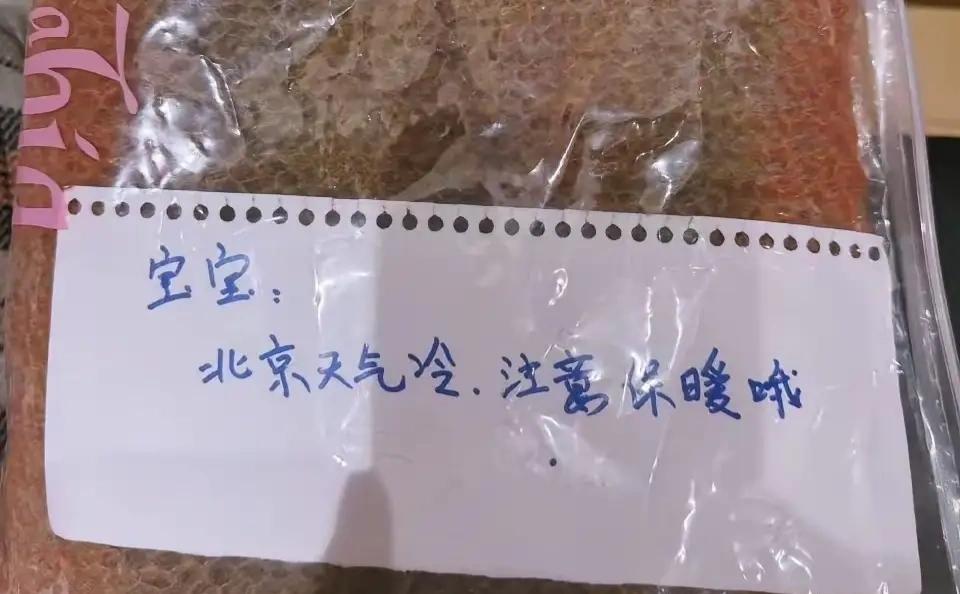 宝宝：
北京天气冷．注意保暖哦